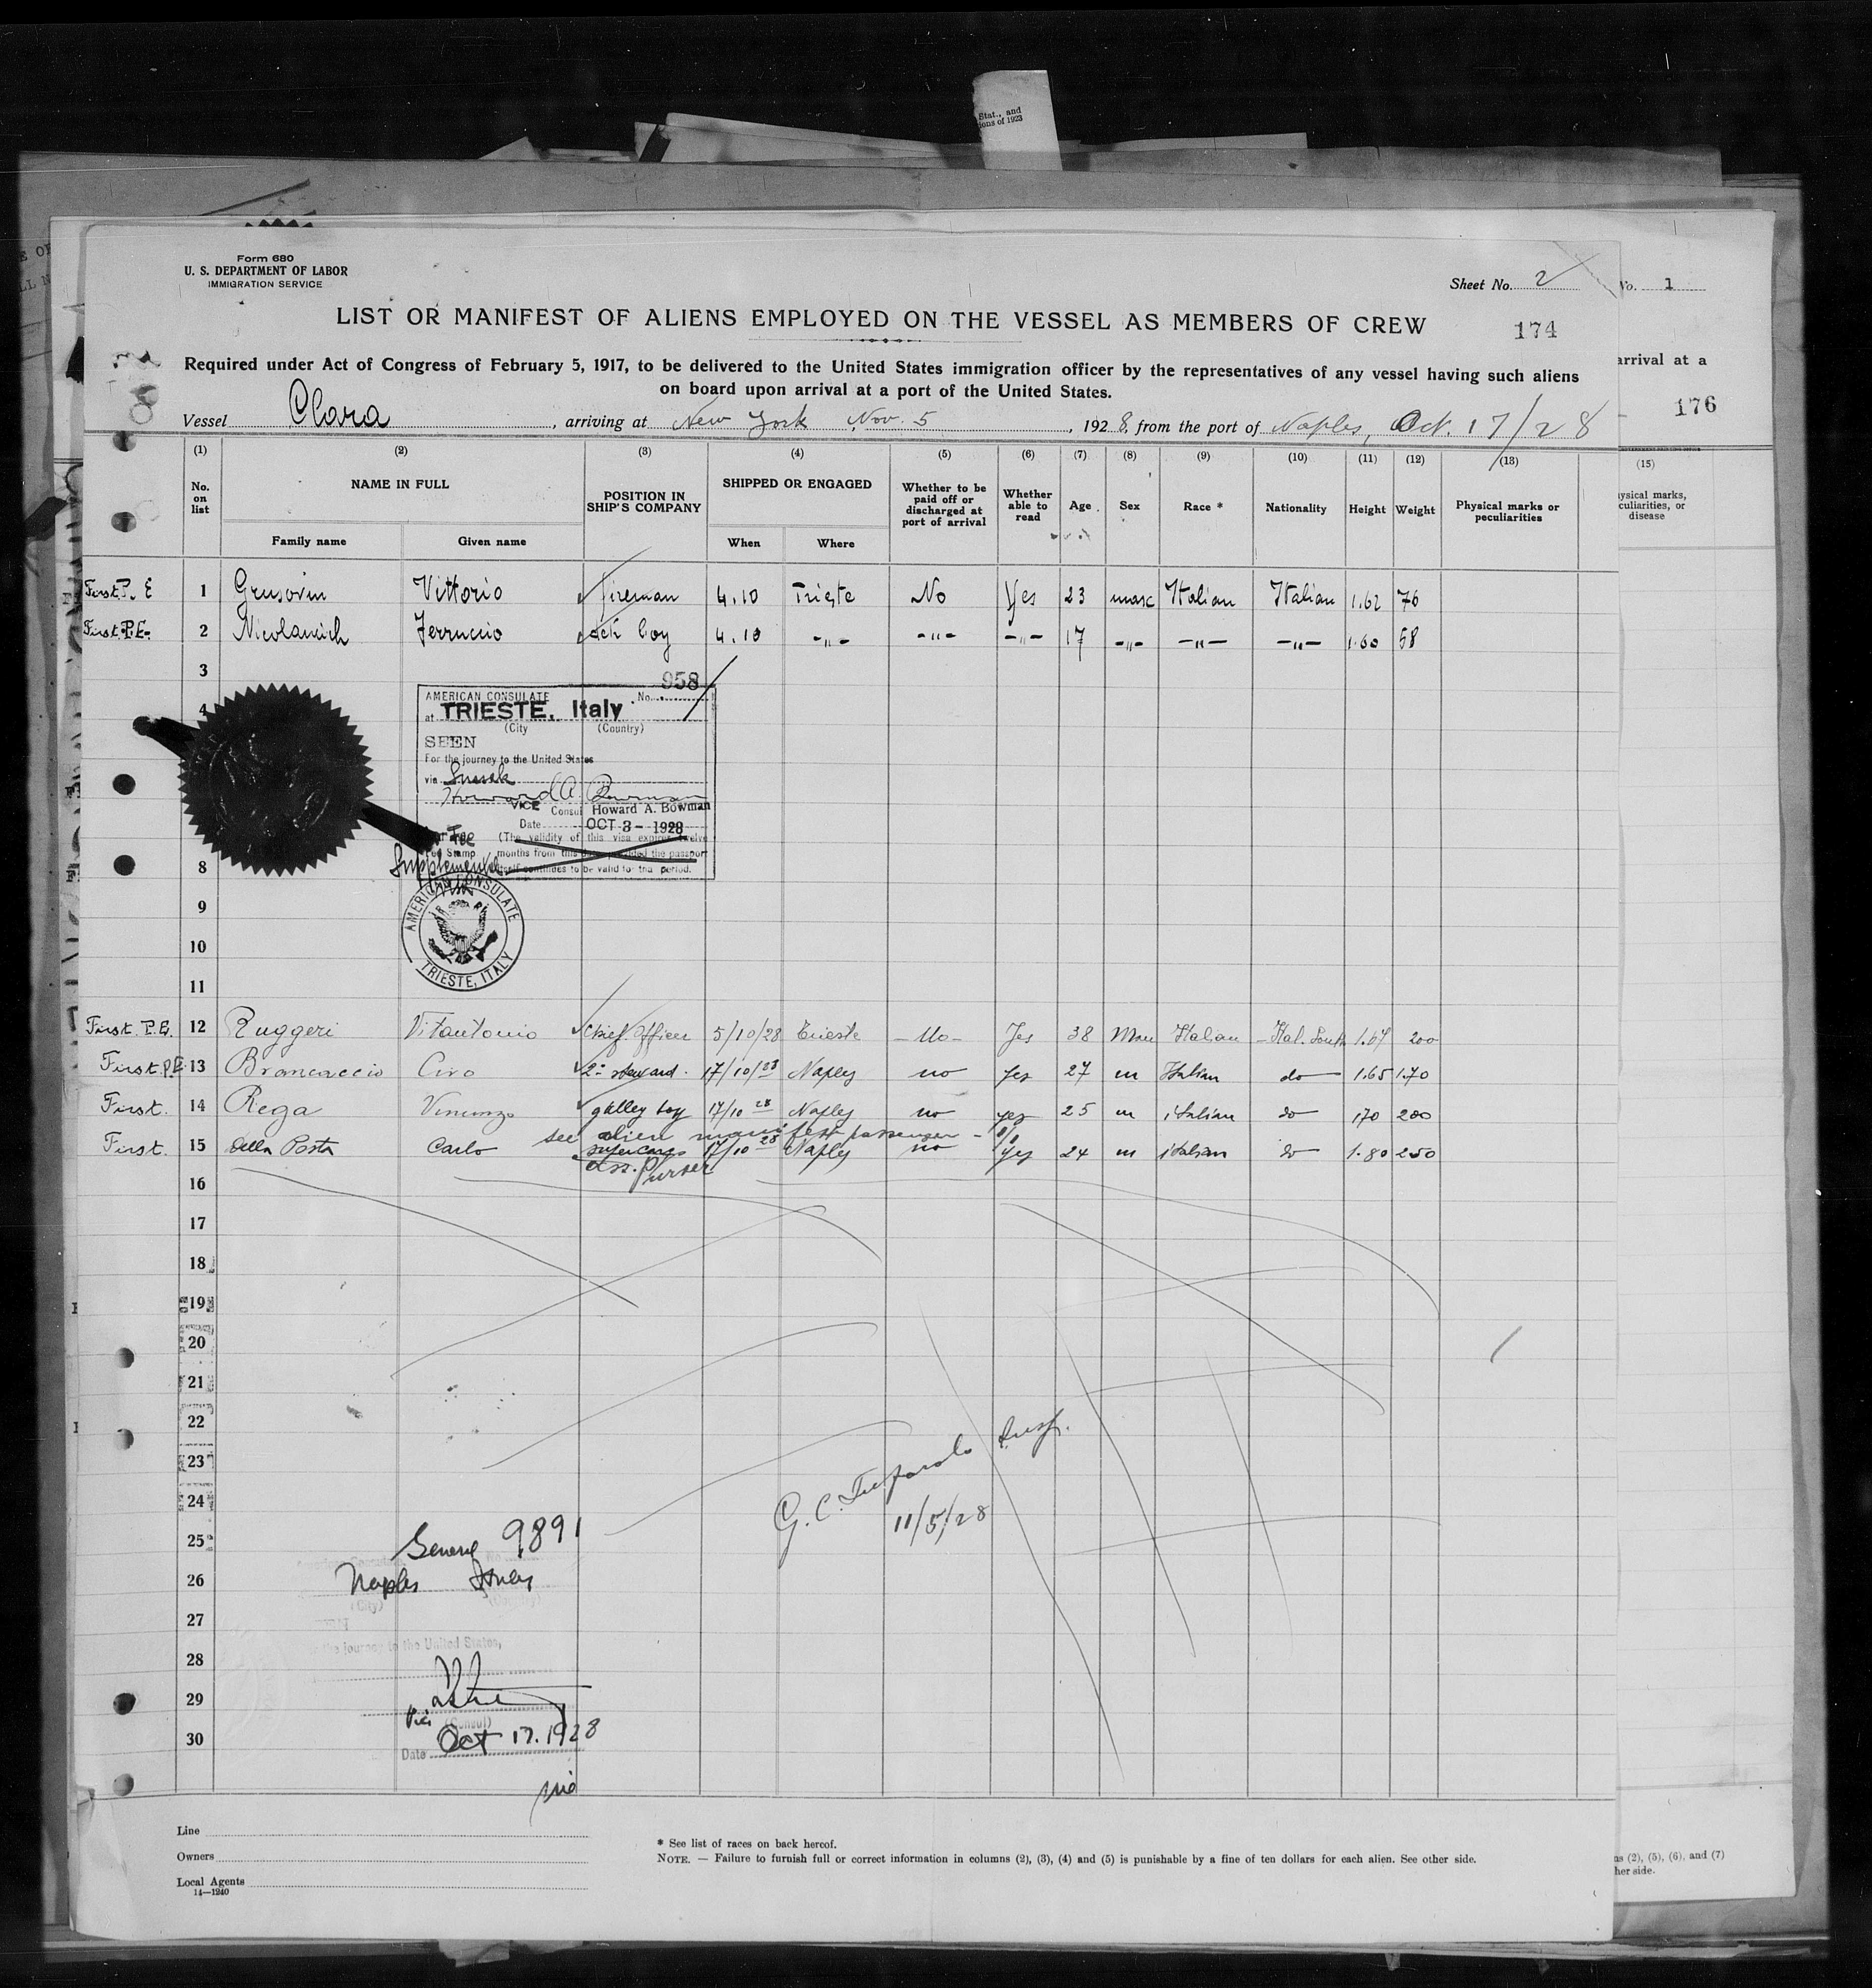 Stat., and
ions of 1923
Form 680
U. S. DEPARTMENT OF LABOR
IMMIGRATION SERVICE
Sheet No. 2
No. 1
LIST OR MANIFEST OF ALIENS EMPLOYED ON THE VESSEL AS MEMBERS OF CREW
174
Required under Act of Congress of February 5, 1917, to be delivered to the United States immigration officer by the representatives of any vessel having such aliens
on board upon arrival at a port of the United States.
arrival at a
176
Vessel Clara, arriving at New York Nov. 5, 1928, from the port of Naples, Oct. 17/28
(1) (2) (3) (4) (5) (6) (7) (8) (9) (10) (11) (12) (13) (15)
No. on list NAME IN FULL POSITION IN SHIP'S COMPANY SHIPPED OR ENGAGED Whether to be paid off or discharged at port of arrival Whether able to read Age Sex Race * Nationality Height Weight Physical marks or peculiarities
ysical marks,
culiarities, or
disease
Family name Given name When Where
First P. E 1 Grusovin Vittorio fireman 4.10 Trieste No Yes 23 masc Italian Italian 1.62 76
First P.E. 2 Ferruccio boy 4.10 -„- -„- -„- 17 -„- -„- -„- 1.60 58
3
958
AMERICAN CONSULATE No.
4
at TRIESTE, Italy
(City (Country)
SEEN
For the journey to the United States
via
Howard A. Bowman
VICE Consul Howard A. Bowman
Date OCT 3 - 1928
Fee (The validity of this visa expires twelve
Stamp months from this date provided the passport
8 Supplemental itself continues to be valid for the period.
AMERICAN CONSULATE
TRIESTE, ITALY
9
10
11
First. P.E. 12 Ruggeri Vitantonio Chief Officer 5/10/28 Trieste - No - Yes 38 Man Italian Ital. South 1.67 200
First. P.E. 13 Brancaccio Ciro 2º steward. 17/10/28 Naples no yes 27 m Italian do 1.65 170
First. 14 Rega Vincenzo galley boy 17/10 28 Naples no yes 25 m italian do 170 200
see alien manifest passenger -
First. 15 della Posta Carlo supercargo 17/10 28 Naples no yes 24 m italian do 1.80 250
ass. Purser
16
17
18
19
20
21
22
23
24
G. C. Insp.
11/5/28
25 General 9891
26 Naples Italy
(City)
27
the journey to the United States,
28
29
Vice (Consul)
30
Date Oct 17. 1928
Line
Owners
Local Agents
14—1240
* See list of races on back hereof.
NOTE. — Failure to furnish full or correct information in columns (2), (3), (4) and (5) is punishable by a fine of ten dollars for each alien. See other side.
ns (2), (5), (6), and (7)
her side.